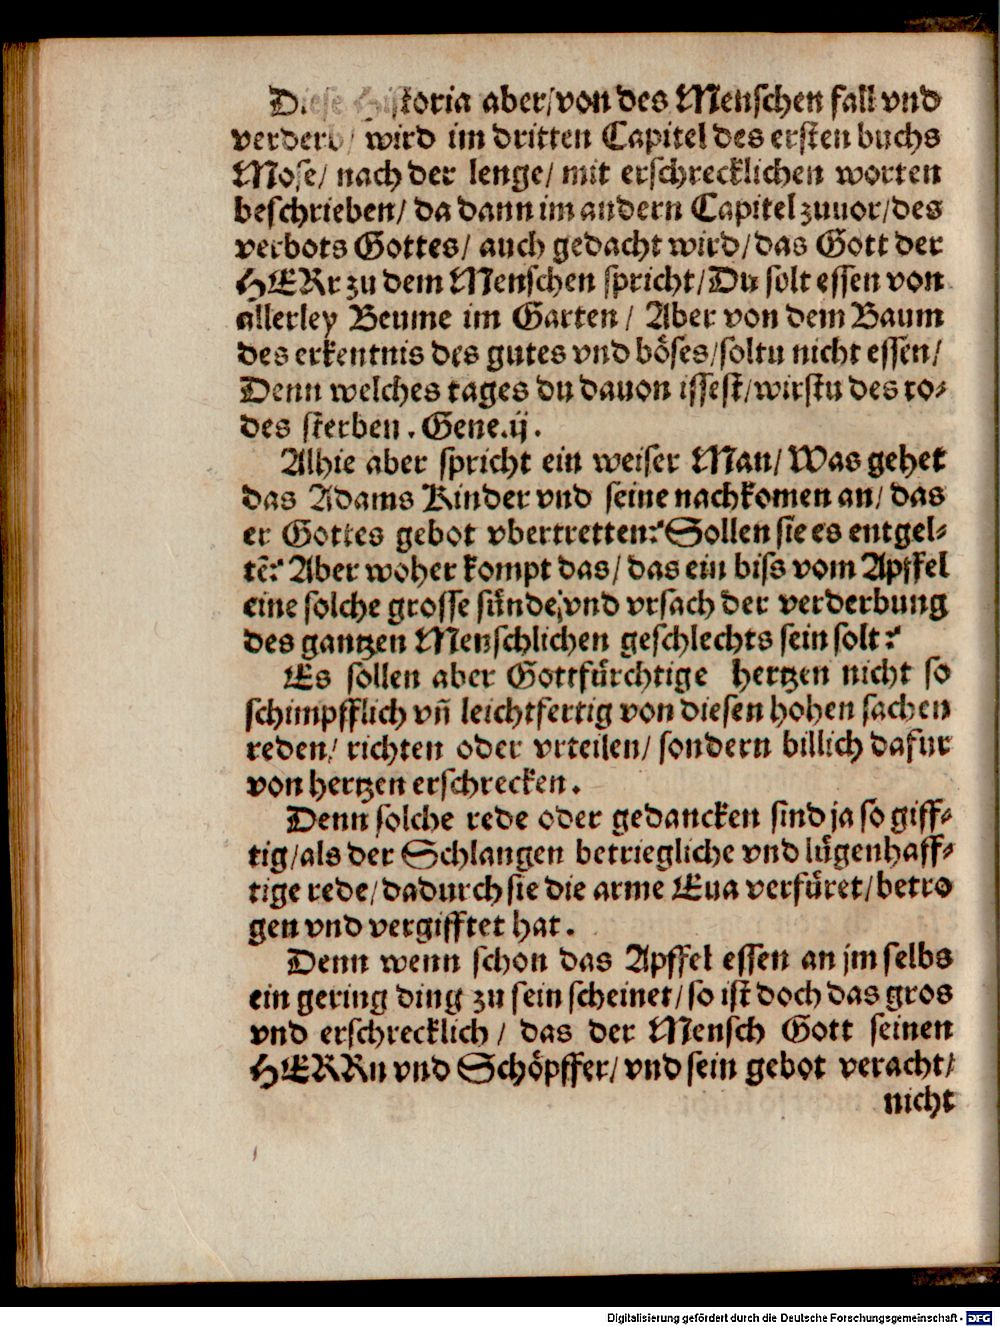 Diese Historia aber/von des Menschen fall vnd
verderb/ wird im dritten Capitel des ersten buchs
Mose/ nach der lenge/ mit erschrecklichen worten
beschrieben/ da dann im andern Capitel zuuor/des
verbots Gottes/ auch gedacht wird/das Gott der
HERr zu dem Menschen spricht/Du solt essen von
allerley Beume im Garten/ Aber von dem Baum
des erkentnis des gutes vnd böses/soltu nicht essen/
Denn welches tages du dauon issest/wirstu des to⸗
des sterben. Gene.ij.
Alhie aber spricht ein weiser Man/ Was gehet
das Adams Kinder vnd seine nachkomen an/ das
er Gottes gebot vbertretten? Sollen sie es entgel⸗
tē? Aber woher kompt das/ das ein biss vom Apffel
eine solche grosse sünde/vnd vrsach der verderbung
des gantzen Menschlichen geschlechts sein solt?
Es sollen aber Gottfürchtige hertzen nicht so
schimpfflich vñ leichtfertig von diesen hohen sachen
reden/ richten oder vrteilen/ sondern billich dafur
von hertzen erschrecken.
Denn solche rede oder gedancken sind ja so giff⸗
tig/als der Schlangen betriegliche vnd lügenhaff⸗
tige rede/dadurch sie die arme Eua verfüret/betro
gen vnd vergifftet hat.
Denn wenn schon das Apffel essen an jm selbs
ein gering ding zu sein scheinet/so ist doch das gros
vnd erschrecklich/ das der Mensch Gott seinen
HERRn vnd Schöpffer/ vnd sein gebot veracht/
nicht
Digitalisierung gefördert durch die Deutsche Forschungsgemeinschaft - DFG